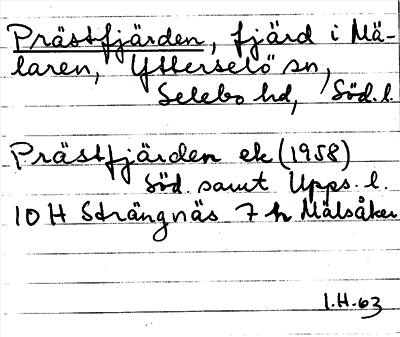 Prästfjärden, fjärd i Mä-
laren, Ytterselö sn,
Selebo hd, Söd. l.
Prästfjärden ek (1958)
Söd. samt Upps. l.
10 H Strängnäs 7 h Mälsåker
I.H.63